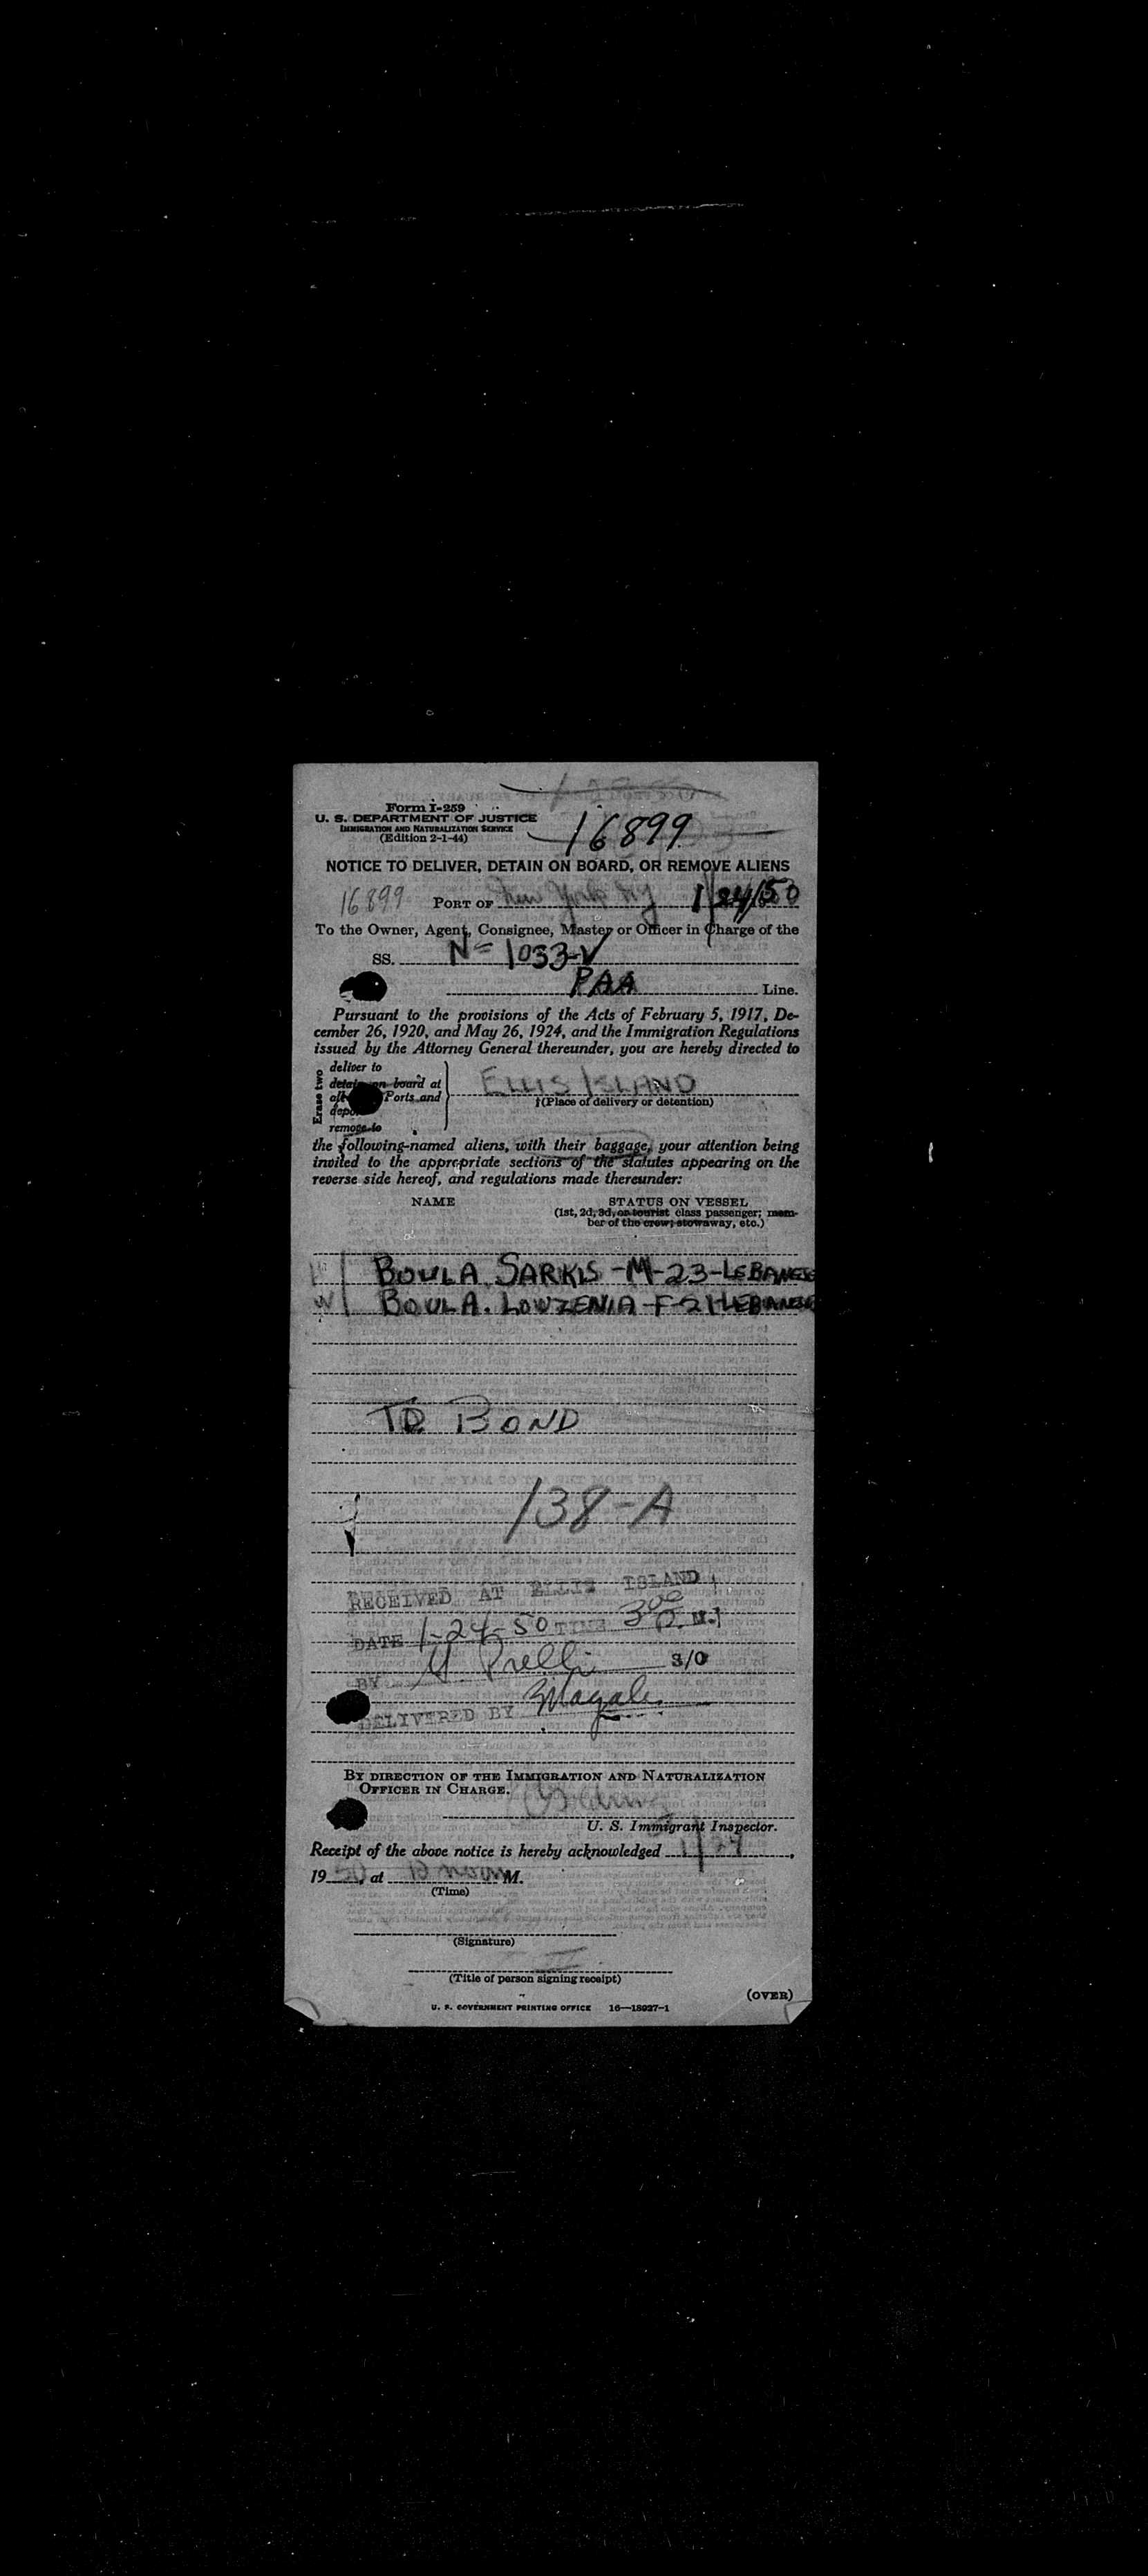 Form I-259
U. S. DEPARTMENT OF JUSTICE
IMMIGRATION AND NATURALIZATION SERVICE
(Edition 2-1-44)
16899
NOTICE TO DELIVER, DETAIN ON BOARD, OR REMOVE ALIENS
16899 PORT OF New York NY 1/24/50
To the Owner, Agent, Consignee, Master or Officer in Charge of the
SS. N-1033-V
PAA Line.
Pursuant to the provisions of the Acts of February 5, 1917, De-
cember 26, 1920, and May 26, 1924, and the Immigration Regulations
issued by the Attorney General thereunder, you are hereby directed to
Erase two
deliver to
detain on board at
Ports and
remove to
ELLIS ISLAND
†(Place of delivery or detention)
the following-named aliens, with their baggage, your attention being
invited to the appropriate sections of the statutes appearing on the
reverse side hereof, and regulations made thereunder:
NAME STATUS ON VESSEL
(1st, 2d, 3d, or tourist class passenger; mem-
ber of the crew; stowaway, etc.)
H BOULA SARKIS -M-23-LEBANESE
W BOULA. LOWZENIA-F-21-LEBANESE
TR BOND
138-A
RECEIVED AT ELLIS ISLAND
DATE 1-24-50 TIME 300 P. M.
BY S/O
DELIVERED BY
BY DIRECTION OF THE IMMIGRATION AND NATURALIZATION
OFFICER IN CHARGE.
U. S. Immigrant Inspector.
Receipt of the above notice is hereby acknowledged 1/24,
19 50, at noon M.
(Time)
(Signature)
(Title of person signing receipt)
(OVER)
U. S. GOVERNMENT PRINTING OFFICE 16—18927-1